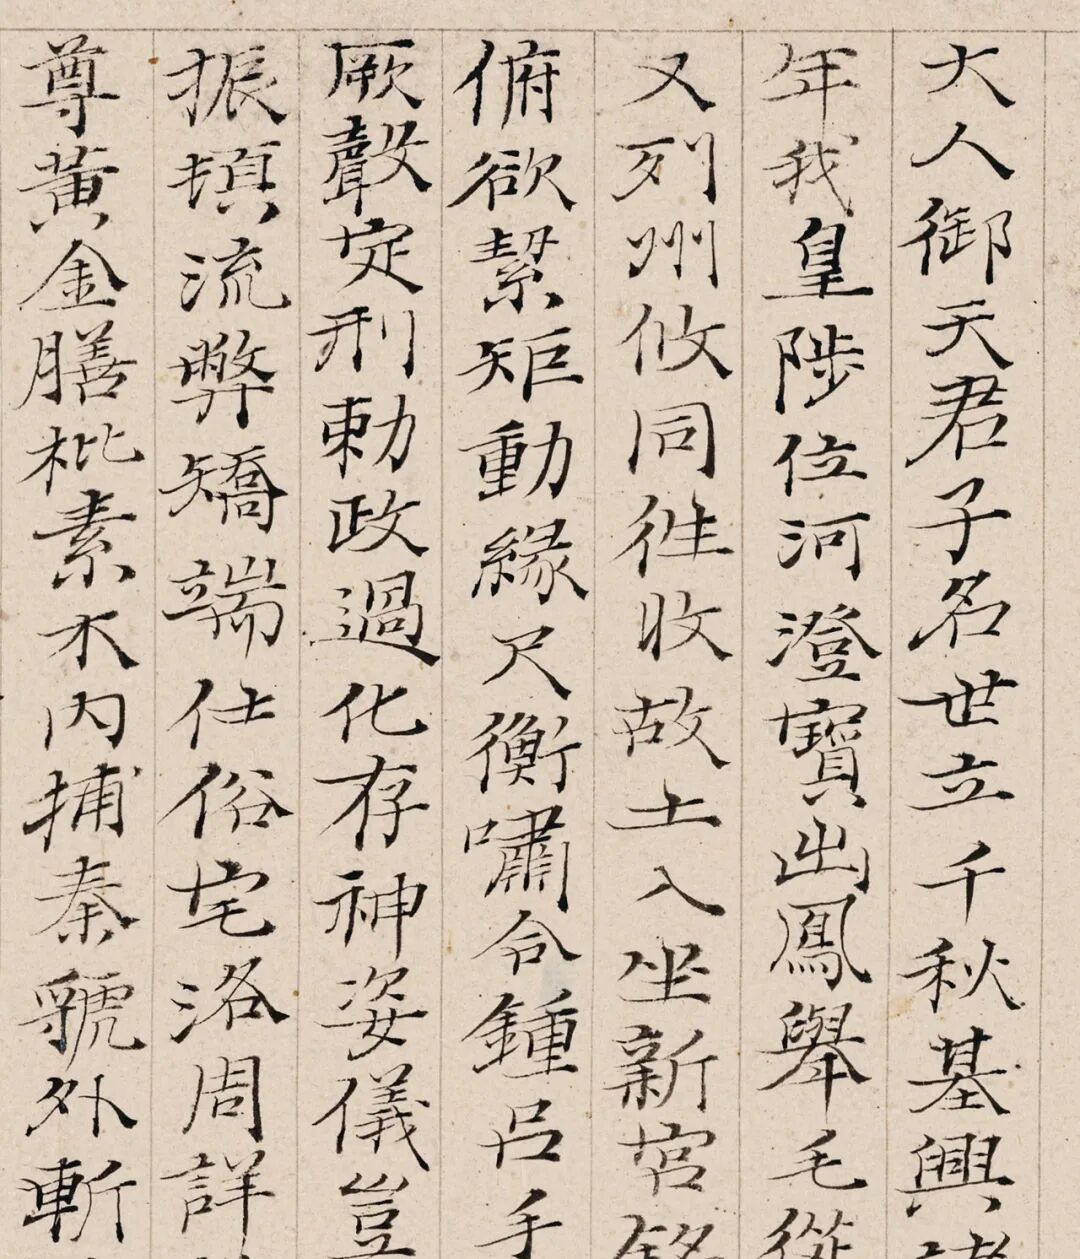 大人御天君子名世立千秋基興
年我皇陟位河澄寶出鳳舉毛從
又列州攸同往收故土入坐新宮銘
俯欲絜矩動緣尺衡嘯令鍾呂手
厥聲定刑勅政過化存神姿儀豈
振頓流弊矯端仕俗宅洛周詳
尊黃金膳枇素木內捕秦虢外斬